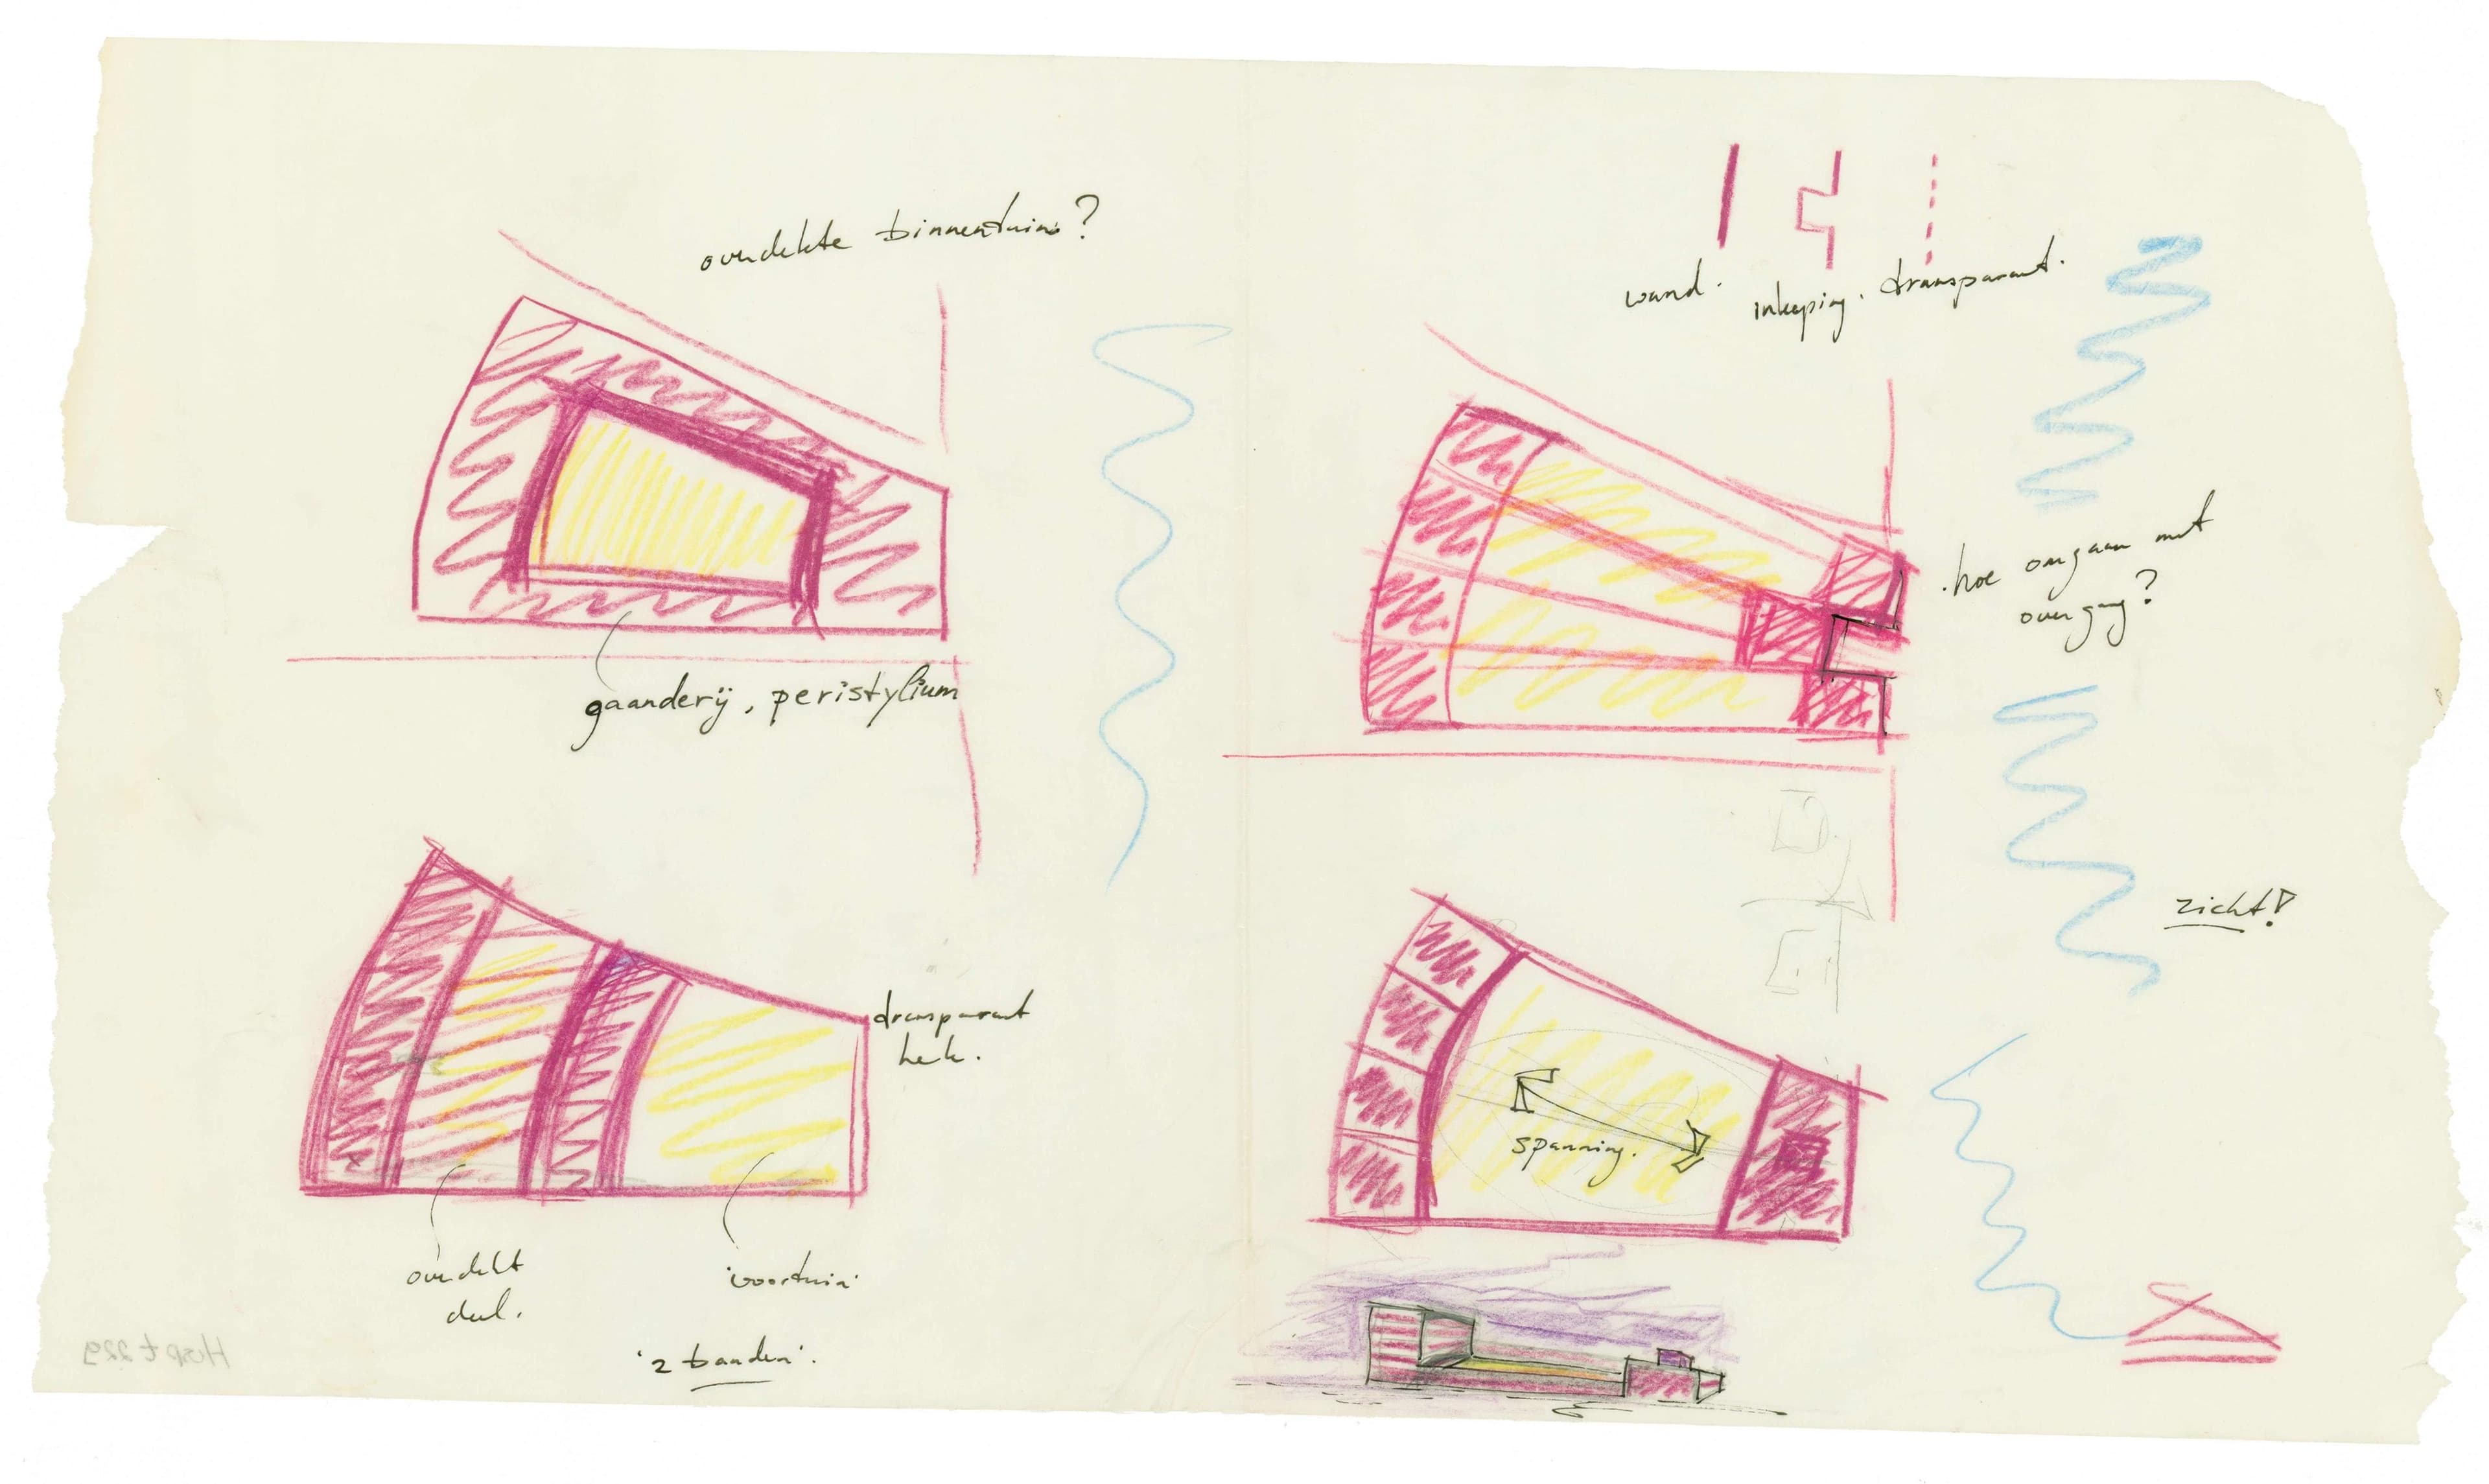 overdekte binnentuin?
gaanderij, peristylium
transparant
hek.
overdekt
deel.
'voortuin'
'2 banden'.
wand. inkeping. transparant.
.hoe omgaan met
overgang?
zicht!
spanning.